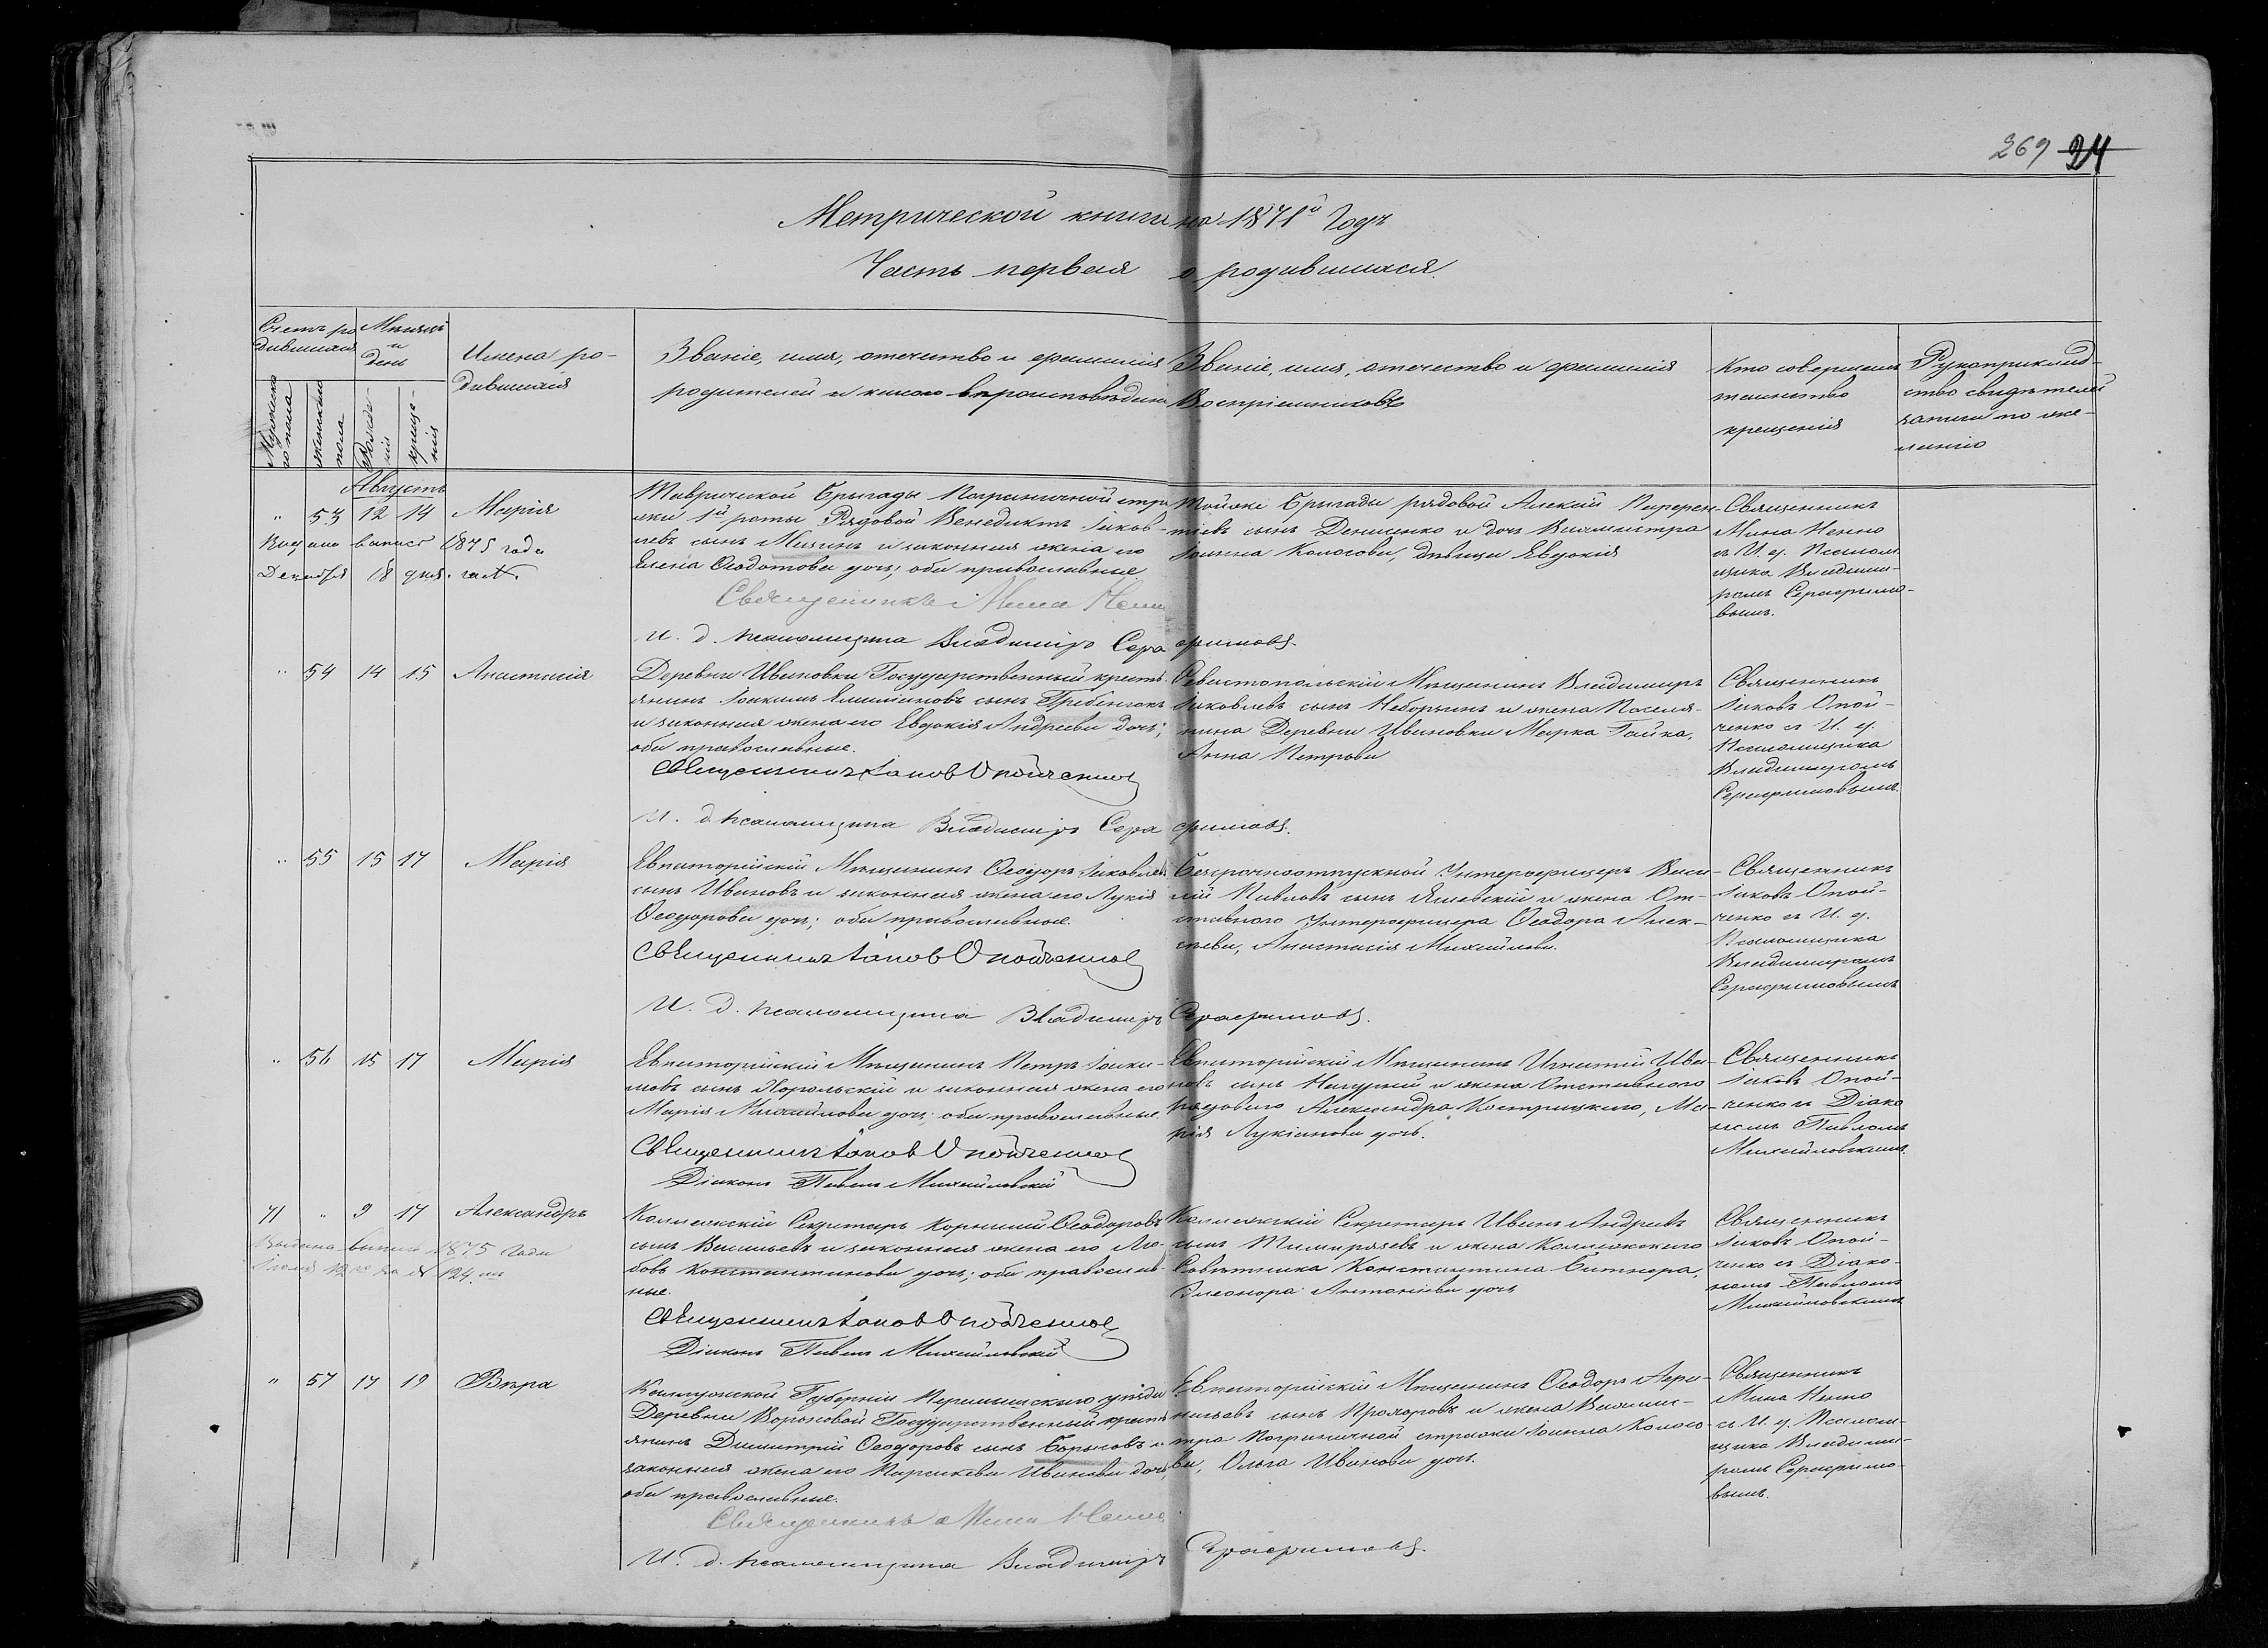 269 24
Метрической книги на 1871й Годъ
Часть первая о родившихся.
Счетъ ро-
дившихся
Мужеска
го пола
женскаго
пола
Мѣсяцъ
и
день
Рожде-
нія
креще-
нія
Имена ро-
дившихся
Званіе, имя, отечество и фамилія
родителей и какого вѣроисповѣданія
Званіе, имя, отечество и фамилія
Воспріемниковъ
Кто совершалъ
таинство
крещенія
Рукоприклад-
ство свидѣтелей
записи по же-
ланію
Августъ
" 53 12 14 Марія
1875 года
Декабря 18 дня
Таврической Бригады Пограничной стра
жи 1й роты Рядовой Венедиктъ Іаков-
левъ сынъ и законная жена его
Елена Ѳеодотова дочь; оба православные
Священникъ Мина
И. д. псаломщика Владиміръ Серафимовъ.
Тойже Бригады рядовой Алексій Парфен-
тіевъ сынъ Денисенко и дочь Вахмистра
Іоанна Колосова, дѣвица Евдокія
Священникъ
Мина
съ И. д. Псалом
щика Владими-
ромъ Серафимо-
вымъ.
" 54 14 15 Анастасія
Деревни Ивановки Государственный кресть-
янинъ Іоакимъ сынъ Гребенюкъ
и законная жена его Евдокія Андреева дочь;
оба православные.
Священникъ Іаковъ Опойченко
И. д. псаломщика Владиміръ Серафимовъ.
Севастопольскій Мѣщанинъ Владиміръ
Іаковлевъ сынъ и жена Поселя-
нина Деревни Ивановки Марка Гайка,
Анна Петрова
Священникъ
Іаковъ Опой-
ченко съ И. д.
Псаломщика
Владиміромъ
Серафимовымъ.
" 55 15 17 Марія
Евпаторійскій Мѣщанинъ Ѳеодоръ Іаковлевъ
сынъ Ивановъ и законная жена его Лукія
Ѳеодорова дочь; оба православные.
Священникъ Іаковъ Опойченко
И. д. псаломщика Владиміръ Серафимовъ.
Безсрочноотпускной Унтерофицеръ Васи-
лій Павловъ сынъ и жена От-
ставного Унтерофицера Ѳеодора Алек-
сѣева, Анастасія Михайлова.
Священникъ
Іаковъ Опой-
ченко съ И. д.
Псаломщика
Владиміромъ
Серафимовымъ
" 56 15 17 Марія
Евпаторійскій Мѣщанинъ Петръ Іоаки-
мовъ сынъ Хорольскій и законная жена его
Марія Михайлова дочь; оба православные.
Священникъ Іаковъ Опойченко
Діаконъ Павелъ Михайловскій
Евпаторійскій Мѣщанинъ Игнатій Ива-
новъ сынъ и жена Отставного
рядового Александра Кострицкаго, Ма-
рія Лукіанова дочь.
Священникъ
Іаковъ Опой-
ченко съ Діако
номъ Павломъ
Михайловскимъ.
71 " 9 17 Александръ
Выдана выпись 1875 года
124.
Коллежскій Секретарь Корнилій Ѳеодоровъ
сынъ Васильевъ и законная жена его Лю-
бовь Константинова дочь; оба православ-
ные.
Священникъ Іаковъ Опойченко
Діаконъ Павелъ Михайловскій
Коллежскій Секретарь Иванъ Андреевъ
сынъ Тимирязевъ и жена Коллежскаго
Совѣтника Константина Битнера,
Элеонора Антоніева дочь
Священникъ
Іаковъ Опой-
ченко съ Діако-
номъ Павломъ
Михайловскимъ
" 57 17 19 Вѣра
Калужской Губерніи Перемышскаго уѣзда
Деревни Вороновой Государственный кресть
янинъ Димитрій Ѳеодоровъ сынъ Борисовъ и
законная жена его Параскева Иванова дочь,
оба православные.
Священникъ Мина
И. д. псаломщика Владиміръ Серафимовъ.
Евпаторійскій Мѣщанинъ Ѳеодоръ
сынъ Прохоровъ и жена Вахмис-
тра Пограничной стражи Іоанна Колосо-
ва, Ольга Иванова дочь.
Священникъ
Мина
съ И. д. Псалом-
щика Владими-
ромъ Серафимо-
вымъ.